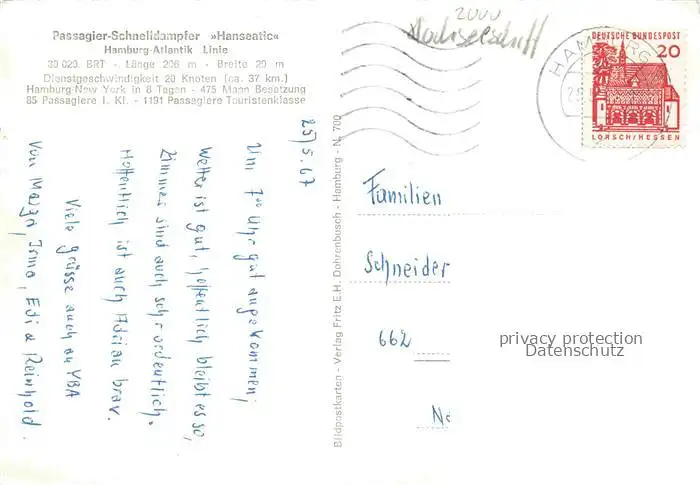 Passagier-Schnelldampfer »Hanseatic«
Hamburg-Atlantik Linie
30 029 BRT - Länge 206 m - Breite 29 m
Dienstgeschwindigkeit 20 Knoten (ca. 37 km.)
Hamburg-New York in 8 Tagen - 475 Mann Besatzung
85 Passagiere I. Kl. - 1191 Passagiere Touristenklasse
25/5.67
Um 7⁰⁰ Uhr gut angekommen;
Wetter ist gut, hoffentlich bleibt es so,
Zimmer sind auch sehr ordentlich.
Hoffentlich ist auch Adrian brav.
Viele Grüsse auch an VBA
Von Marga, Irma, Edi u Reinhold.
Bildpostkarten - Verlag Fritz E.H. Dohrenbusch - Hamburg - N. 700
2000
HAMBURG
DEUTSCHE BUNDESPOST
20
LORSCH/HESSEN
Familien
Schneider
662
privacy protection
Datenschutz